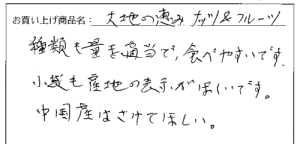 お買い上げ商品名: 大地の恵み ナッツ&フルーツ
種類も量も適当で、食べやすいです。
小袋も産地の表示がほしいです。
中国産はさけてほしい。